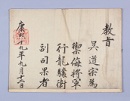 教旨
吳道宗爲
禦侮將軍
行龍驤衛
副司果者
康熙十九年九月 日